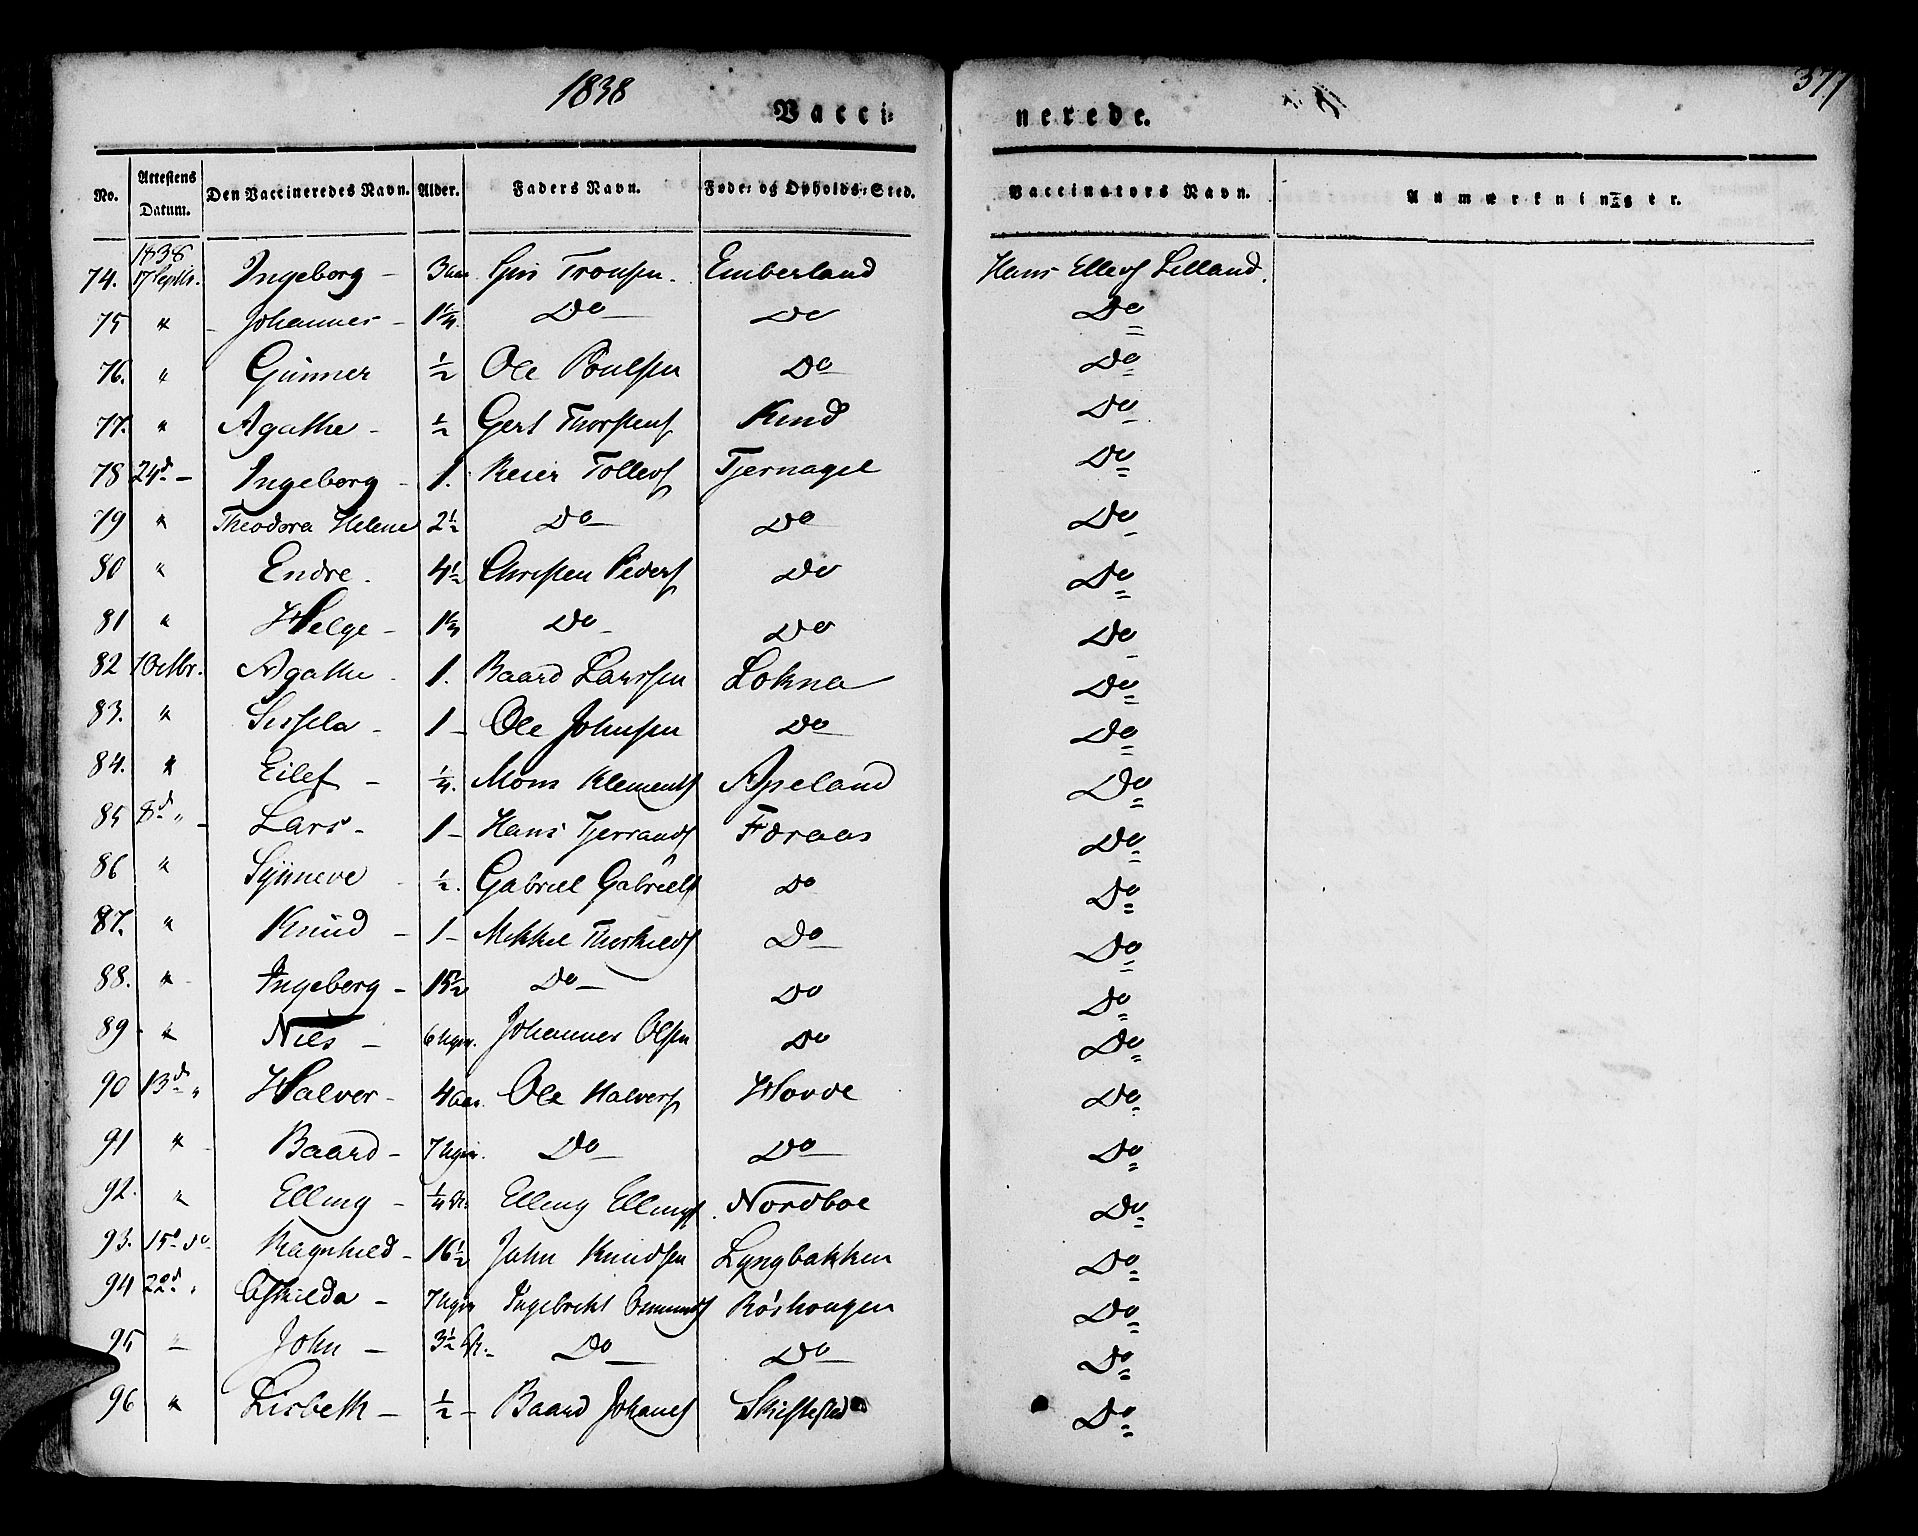 1838
377
Vacci: nerede.
No. Attestens Datum. Den Vaccineredes Navn. Alder. Faders Navn. Føde: og Opholds:Sted. Vaccinators Navn. Anmærkninger.
1838
74. 17 Septbr. Ingeborg - 3 aar Tronsen. Emberland Hans Ellevs Lilland.
75 " - Johannes - 1¼. Do Do Do
76. " Gunner ½ Ole Poulsen Do Do
77. " Agathe - ½ Gert Thorstens Do
78 24d - Ingeborg - 1. Reier Tollevs Tjernagel Do
79 " Theodora Helene 2½ Do Do Do
80 " Endre. 4½ Christen Peders Do Do
81 " Helge - Do Do Do
82 1 Octbr. Agathe. 1. Baard Larssen Lokna Do
83. " Sissela - 1 - Ole Johnsen Do Do
84. " Eilef - ¼. Mons Klements Apeland Do
85 8d " - Lars - 1 - Hans Tjerrands Foraas Do
86 " Synneve - ½. Gabriel Gabriels Do Do
87. " Knud - 1 - Mikkel Thorkilds Do Do
88. " - Ingeborg - Do Do Do
89 " Niels - 6 Ugr. Johannes Olsen Do Do
90 13d " Halver - 4 aar. Ole Halvers Hovde Do
91 " - Baard - 7 Ugr. Do Do Do
92. " Elling - ¼ Elling Ellings Nordboe Do
93. 15d do Ragnhild - 16½ John Knudsen Lyngbakken Do
94 22d " Oshilda - 7 Ugr Ingebrikt Osmunds Røshougen Do
95 " John - 3½ Do Do Do
96 " Lisbeth - ½ - Baard Johanes Skiftested Do